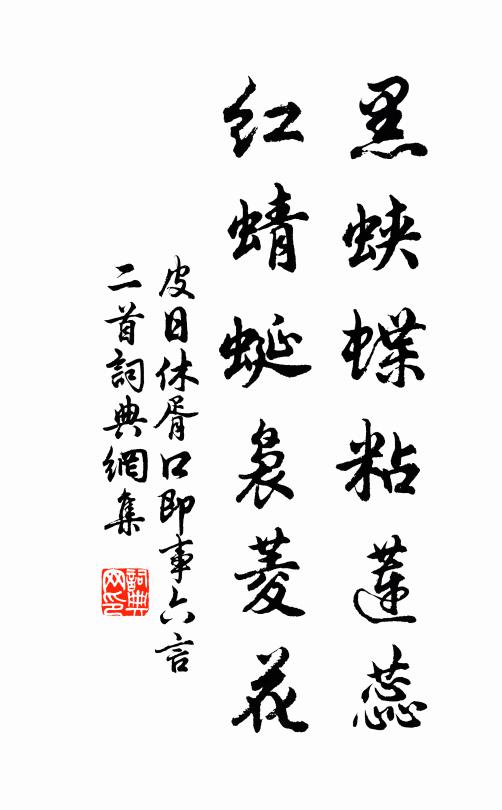 黑蛺蝶粘蓮蕊
紅蜻蜓裊菱花
皮日休胥口即事六言
二首詞典網集
詞典網印